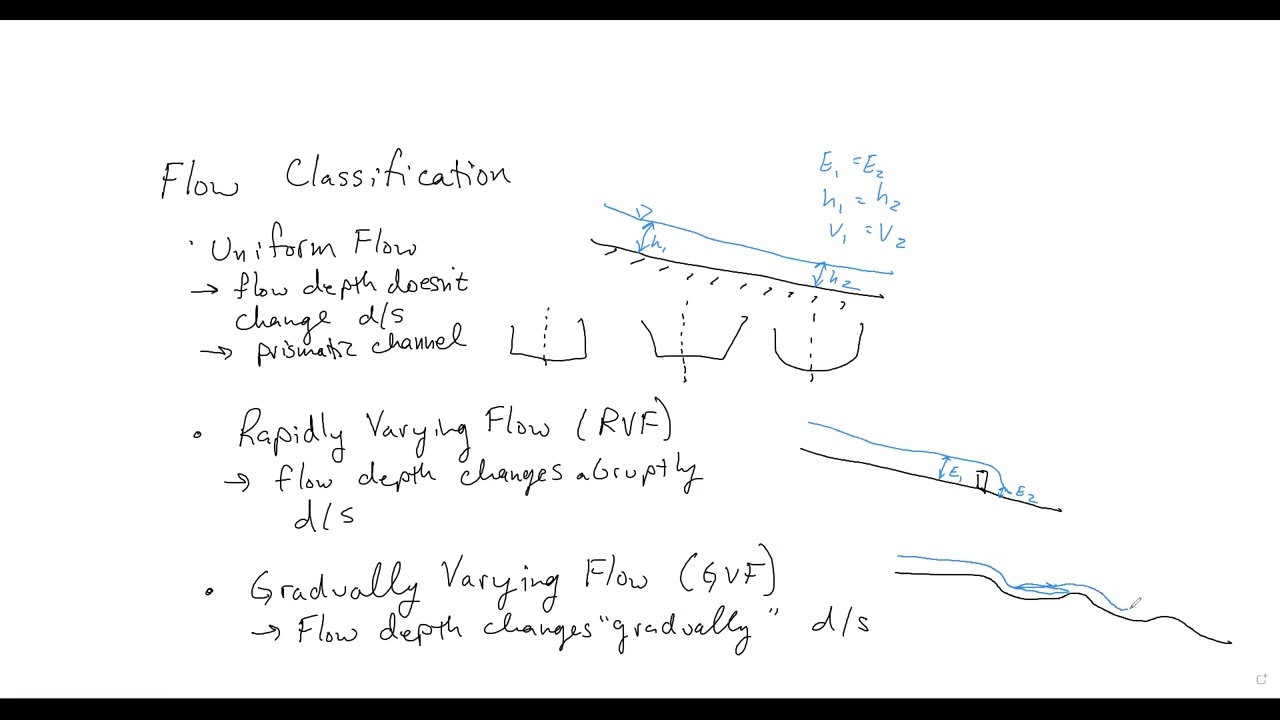 Flow Classification
E₁ = E₂
h₁ = h₂
V₁ = V₂
· Uniform Flow
→ flow depth doesn't
change d/s
→ prismatic channel
h₁
h₂
• Rapidly Varying Flow (RVF)
→ flow depth changes abruptly
d/s
E₁
E₂
• Gradually Varying Flow (GVF)
→ Flow depth changes "gradually" d/s